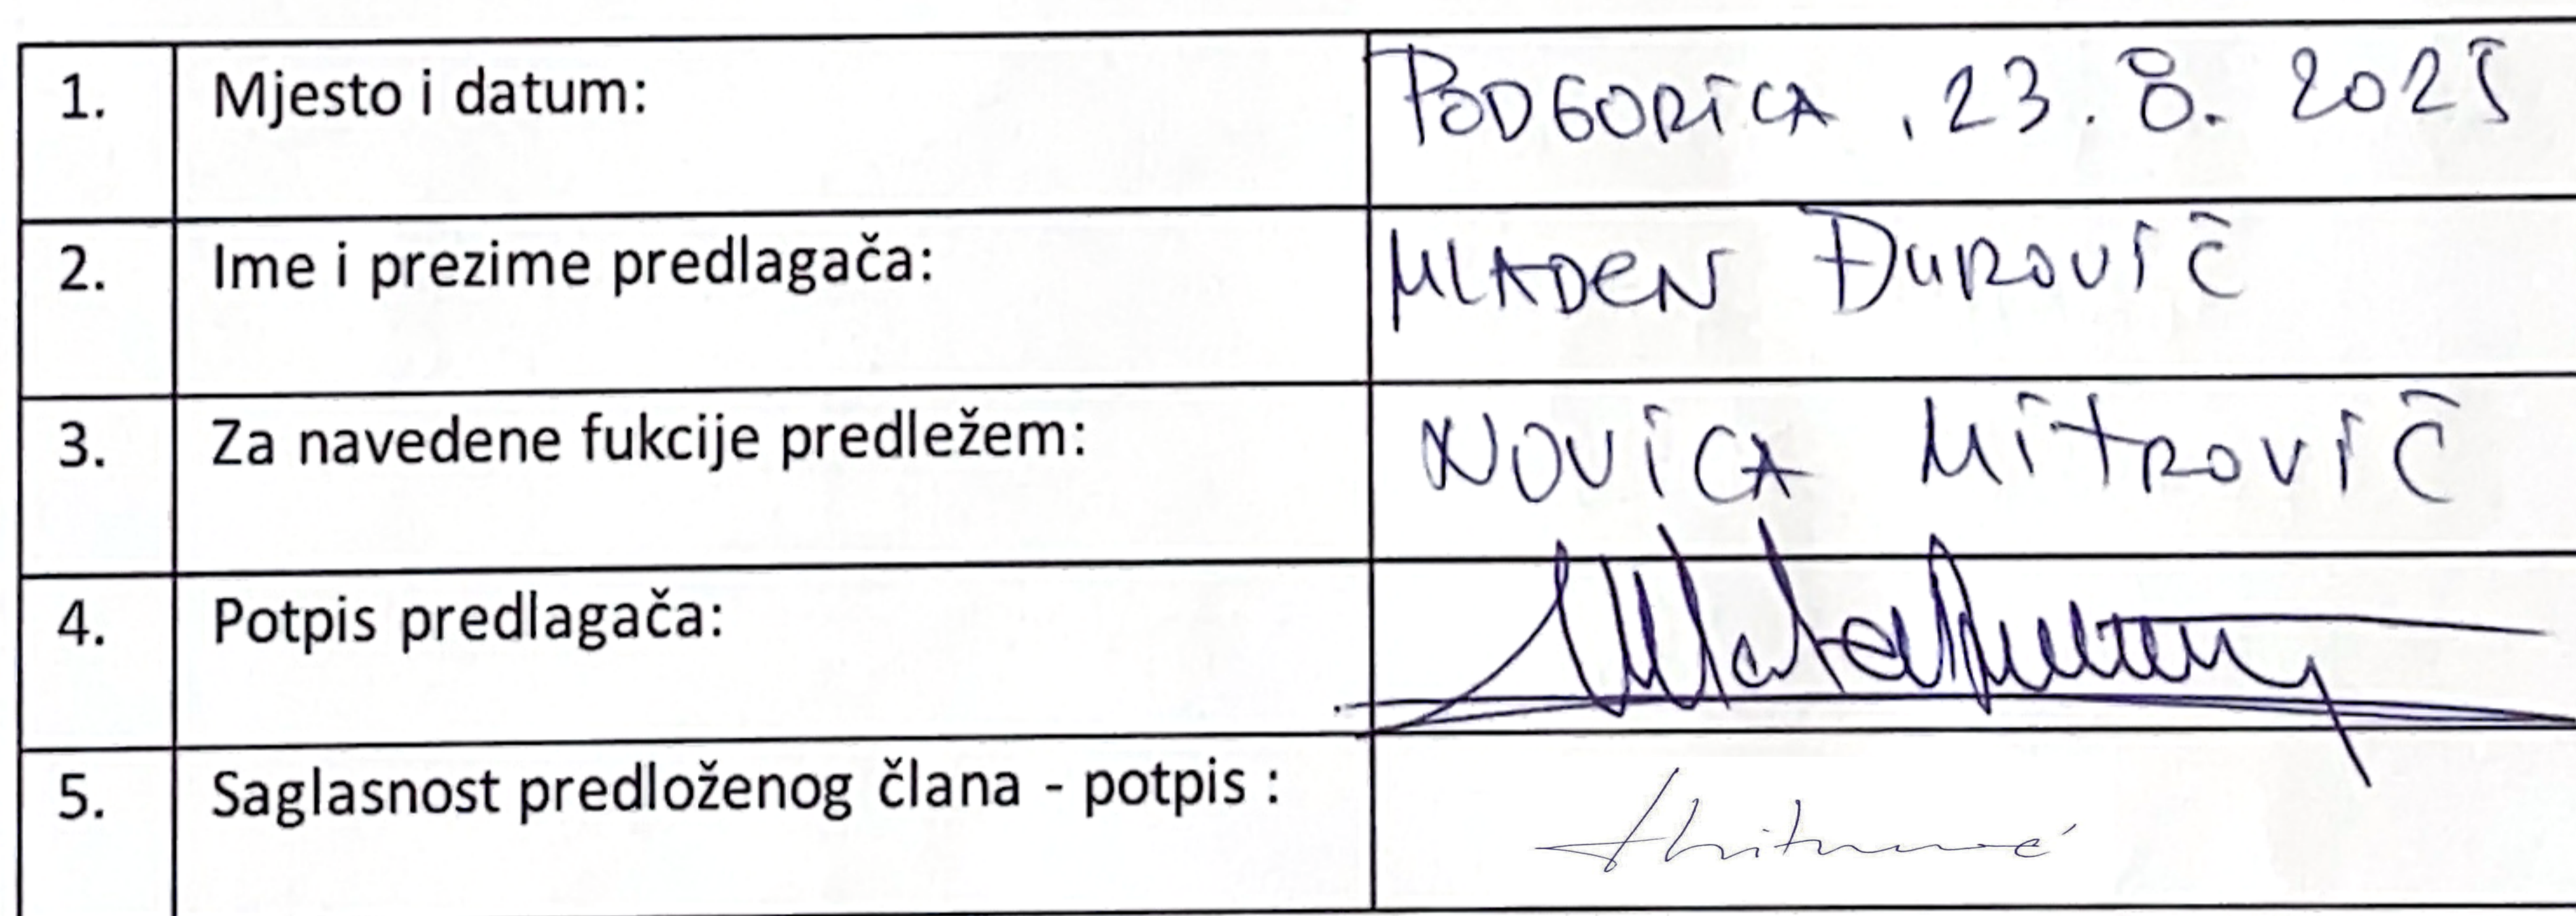 1. Mjesto i datum: PODGORICA, 23. 8. 2025
2. Ime i prezime predlagača: MLADEN ĐUROVIĆ
3. Za navedene fukcije predležem: NOVICA MITROVIĆ
4. Potpis predlagača:
5. Saglasnost predloženog člana - potpis :